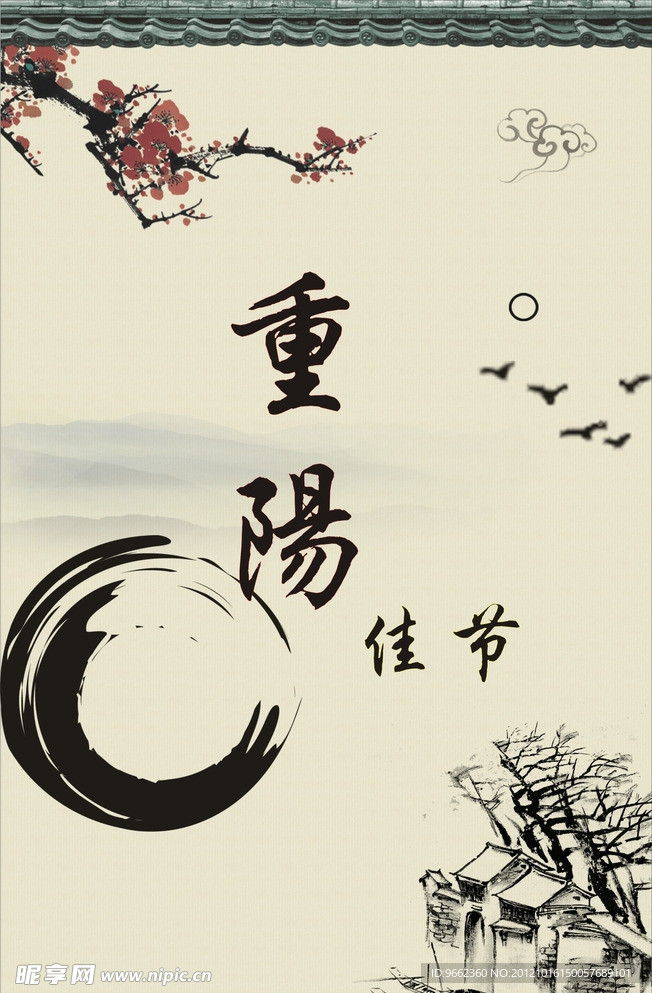 重
陽
佳节
昵享网 www.nipic.cn
ID:9662360 NO:20121016150057689101